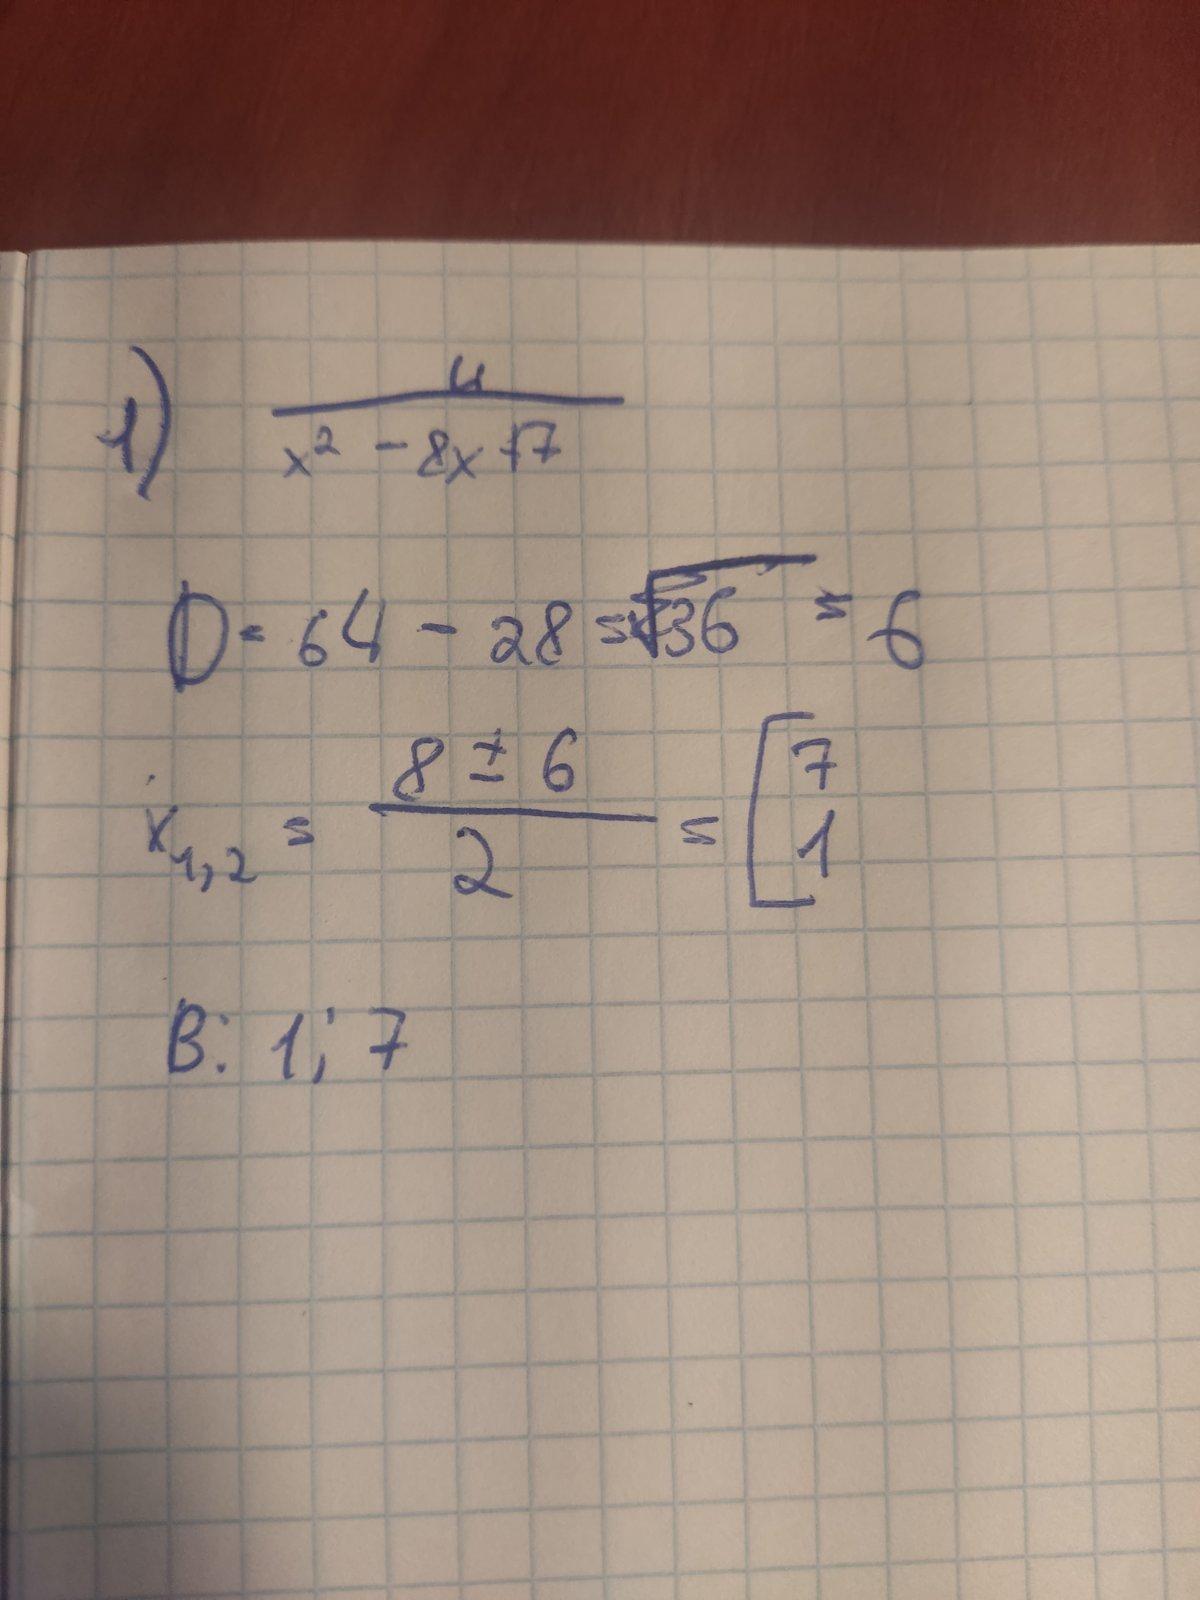 1) 4
x² - 8x + 7
D = 64 - 28 = √36 = 6
x₁,₂ = 8 ± 6 / 2 = [ 7
1
В: 1; 7